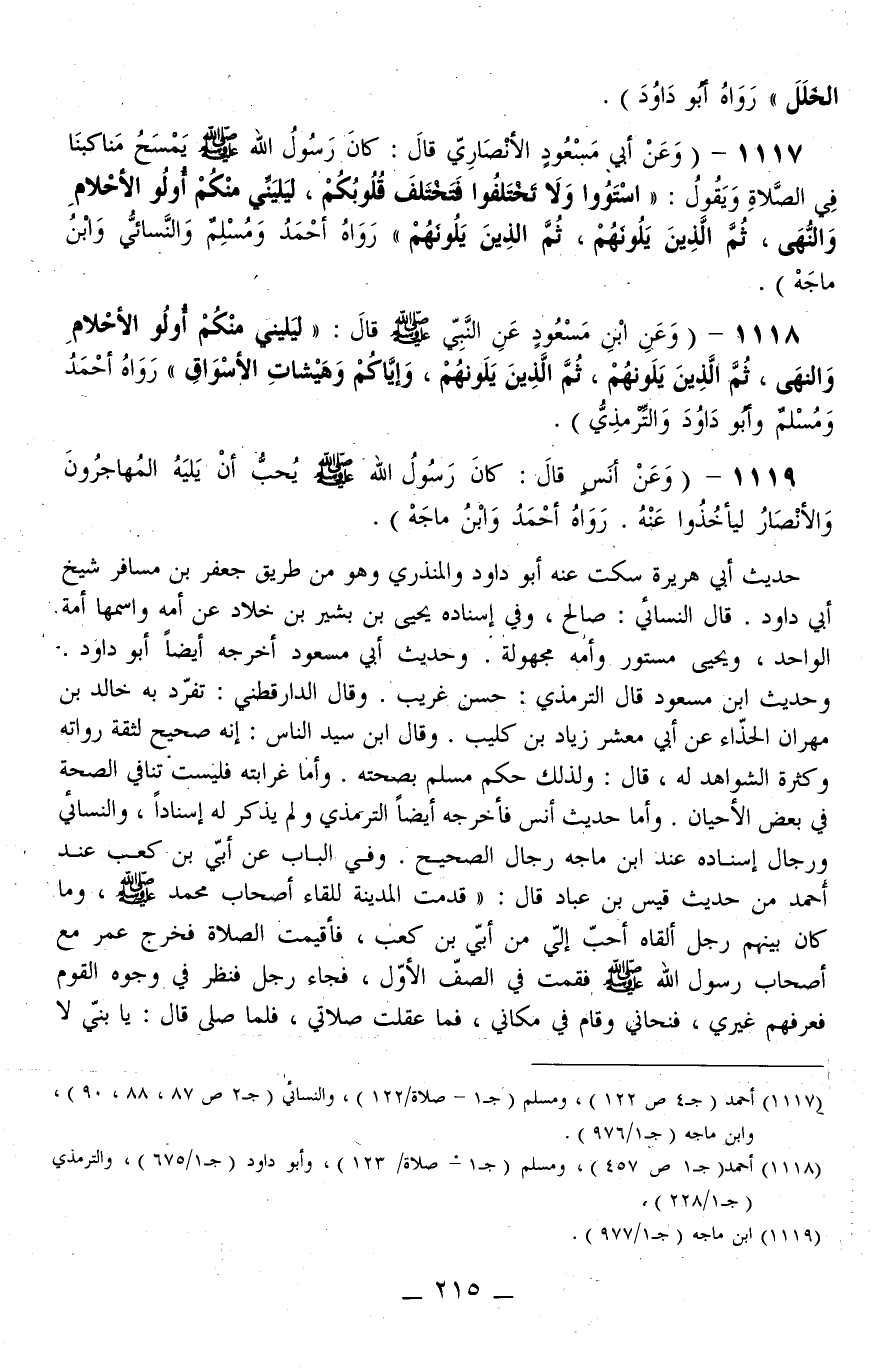 الخَلَلَ » رَوَاهُ أَبُو دَاوُدَ ) .
١١١٧ – ( وَعَنْ أبي مَسْعُودٍ الأنْصَارِيّ قالَ : كانَ رَسُولُ الله ﷺ يَمْسَحُ مَناكبنَا
فِي الصَّلاةِ وَيَقُولُ : « اسْتَوُوا وَلَا تَخْتَلفُوا فَتَخْتَلفَ قُلُوبُكُمْ ، لَيَليَنِّي منْكُمْ أُولُو الأحْلامِ
وَالنُّهَى ، ثُمَّ الَّذِينَ يَلُونَهُمْ ، ثُمَّ الذِينَ يَلُونَهُمْ » رَوَاهُ أحْمَدُ وَمُسْلِمٌ وَالنَّسائيُّ وَابْنُ
ماجَهْ ) .
١١١٨ – ( وَعَنِ ابْنِ مَسْعُودٍ عَنِ النَّبِيّ ﷺ قالَ : « لَيَليني منْكُمْ أُولُو الأحْلامِ
وَالنهَى ، ثُمَّ الَّذِينَ يَلَونهُمْ ، ثُمَّ الَّذِينَ يَلَونهُمْ ، وَإيَّاكُمْ وَهَيْشاتِ الأسْوَاقِ » رَوَاهُ أحْمَدُ
وَمُسْلمٌ وأبُو دَاوُدَ وَالتِّرْمذِيُّ ) .
١١١٩ – ( وَعَنْ أنَسٍ قالَ : كانَ رَسُولُ الله ﷺ يُحبُّ أنْ يَليَهُ المُهاجرُونَ
وَالأنْصَارُ ليأخُذُوا عَنْهُ . رَوَاهُ أحْمَدُ وَابْنُ ماجَهْ ) .
حديث أبي هريرة سكت عنه أبو داود والمنذري وهو من طريق جعفر بن مسافر شيخ
أبي داود . قال النسائي : صالح ، وفي إسناده يحيى بن بشير بن خلاد عن أمه واسمها أمة
الواحد ، ويحيى مستور وأمه مجهولة . وحديث أبي مسعود أخرجه أيضاً أبو داود .
وحديث ابن مسعود قال الترمذي : حسن غريب . وقال الدارقطني : تفرّد به خالد بن
مهران الحذّاء عن أبي معشر زياد بن كليب . وقال ابن سيد الناس : إنه صحيح لثقة رواته
وكثرة الشواهد له ، قال : ولذلك حكم مسلم بصحته . وأما غرابته فليست تنافي الصحة
في بعض الأحيان . وأما حديث أنس فأخرجه أيضاً الترمذي ولم يذكر له إسناداً ، والنسائي
ورجال إسناده عند ابن ماجه رجال الصحيح . وفي الباب عن أبيّ بن كعب عند
أحمد من حديث قيس بن عباد قال : « قدمت المدينة للقاء أصحاب محمد ﷺ ، وما
كان بينهم رجل ألقاه أحبّ إليّ من أبيّ بن كعب ، فأقيمت الصلاة فخرج عمر مع
أصحاب رسول الله ﷺ فقمت في الصفّ الأوّل ، فجاء رجل فنظر في وجوه القوم
فعرفهم غيري ، فنحاني وقام في مكاني ، فما عقلت صلاتي ، فلما صلى قال : يا بنيّ لا
(١١١٧) أحمد ( جـ٤ ص ١٢٢ ) ، ومسلم ( جـ١ – صلاة/١٢٢ ) ، والنسائي ( جـ٢ ص ٨٧ ، ٨٨ ، ٩٠ ) ،
وابن ماجه ( جـ٩٧٦/١ ) .
(١١١٨) أحمد( جـ١ ص ٤٥٧ ) ، ومسلم ( جـ١ – صلاة/ ١٢٣ ) ، وأبو داود ( جـ٦٧٥/١ ) ، والترمذي
( جـ٢٢٨/١ ) ،
(١١١٩) ابن ماجه ( جـ٩٧٧/١ ) .
– ٢١٥ –